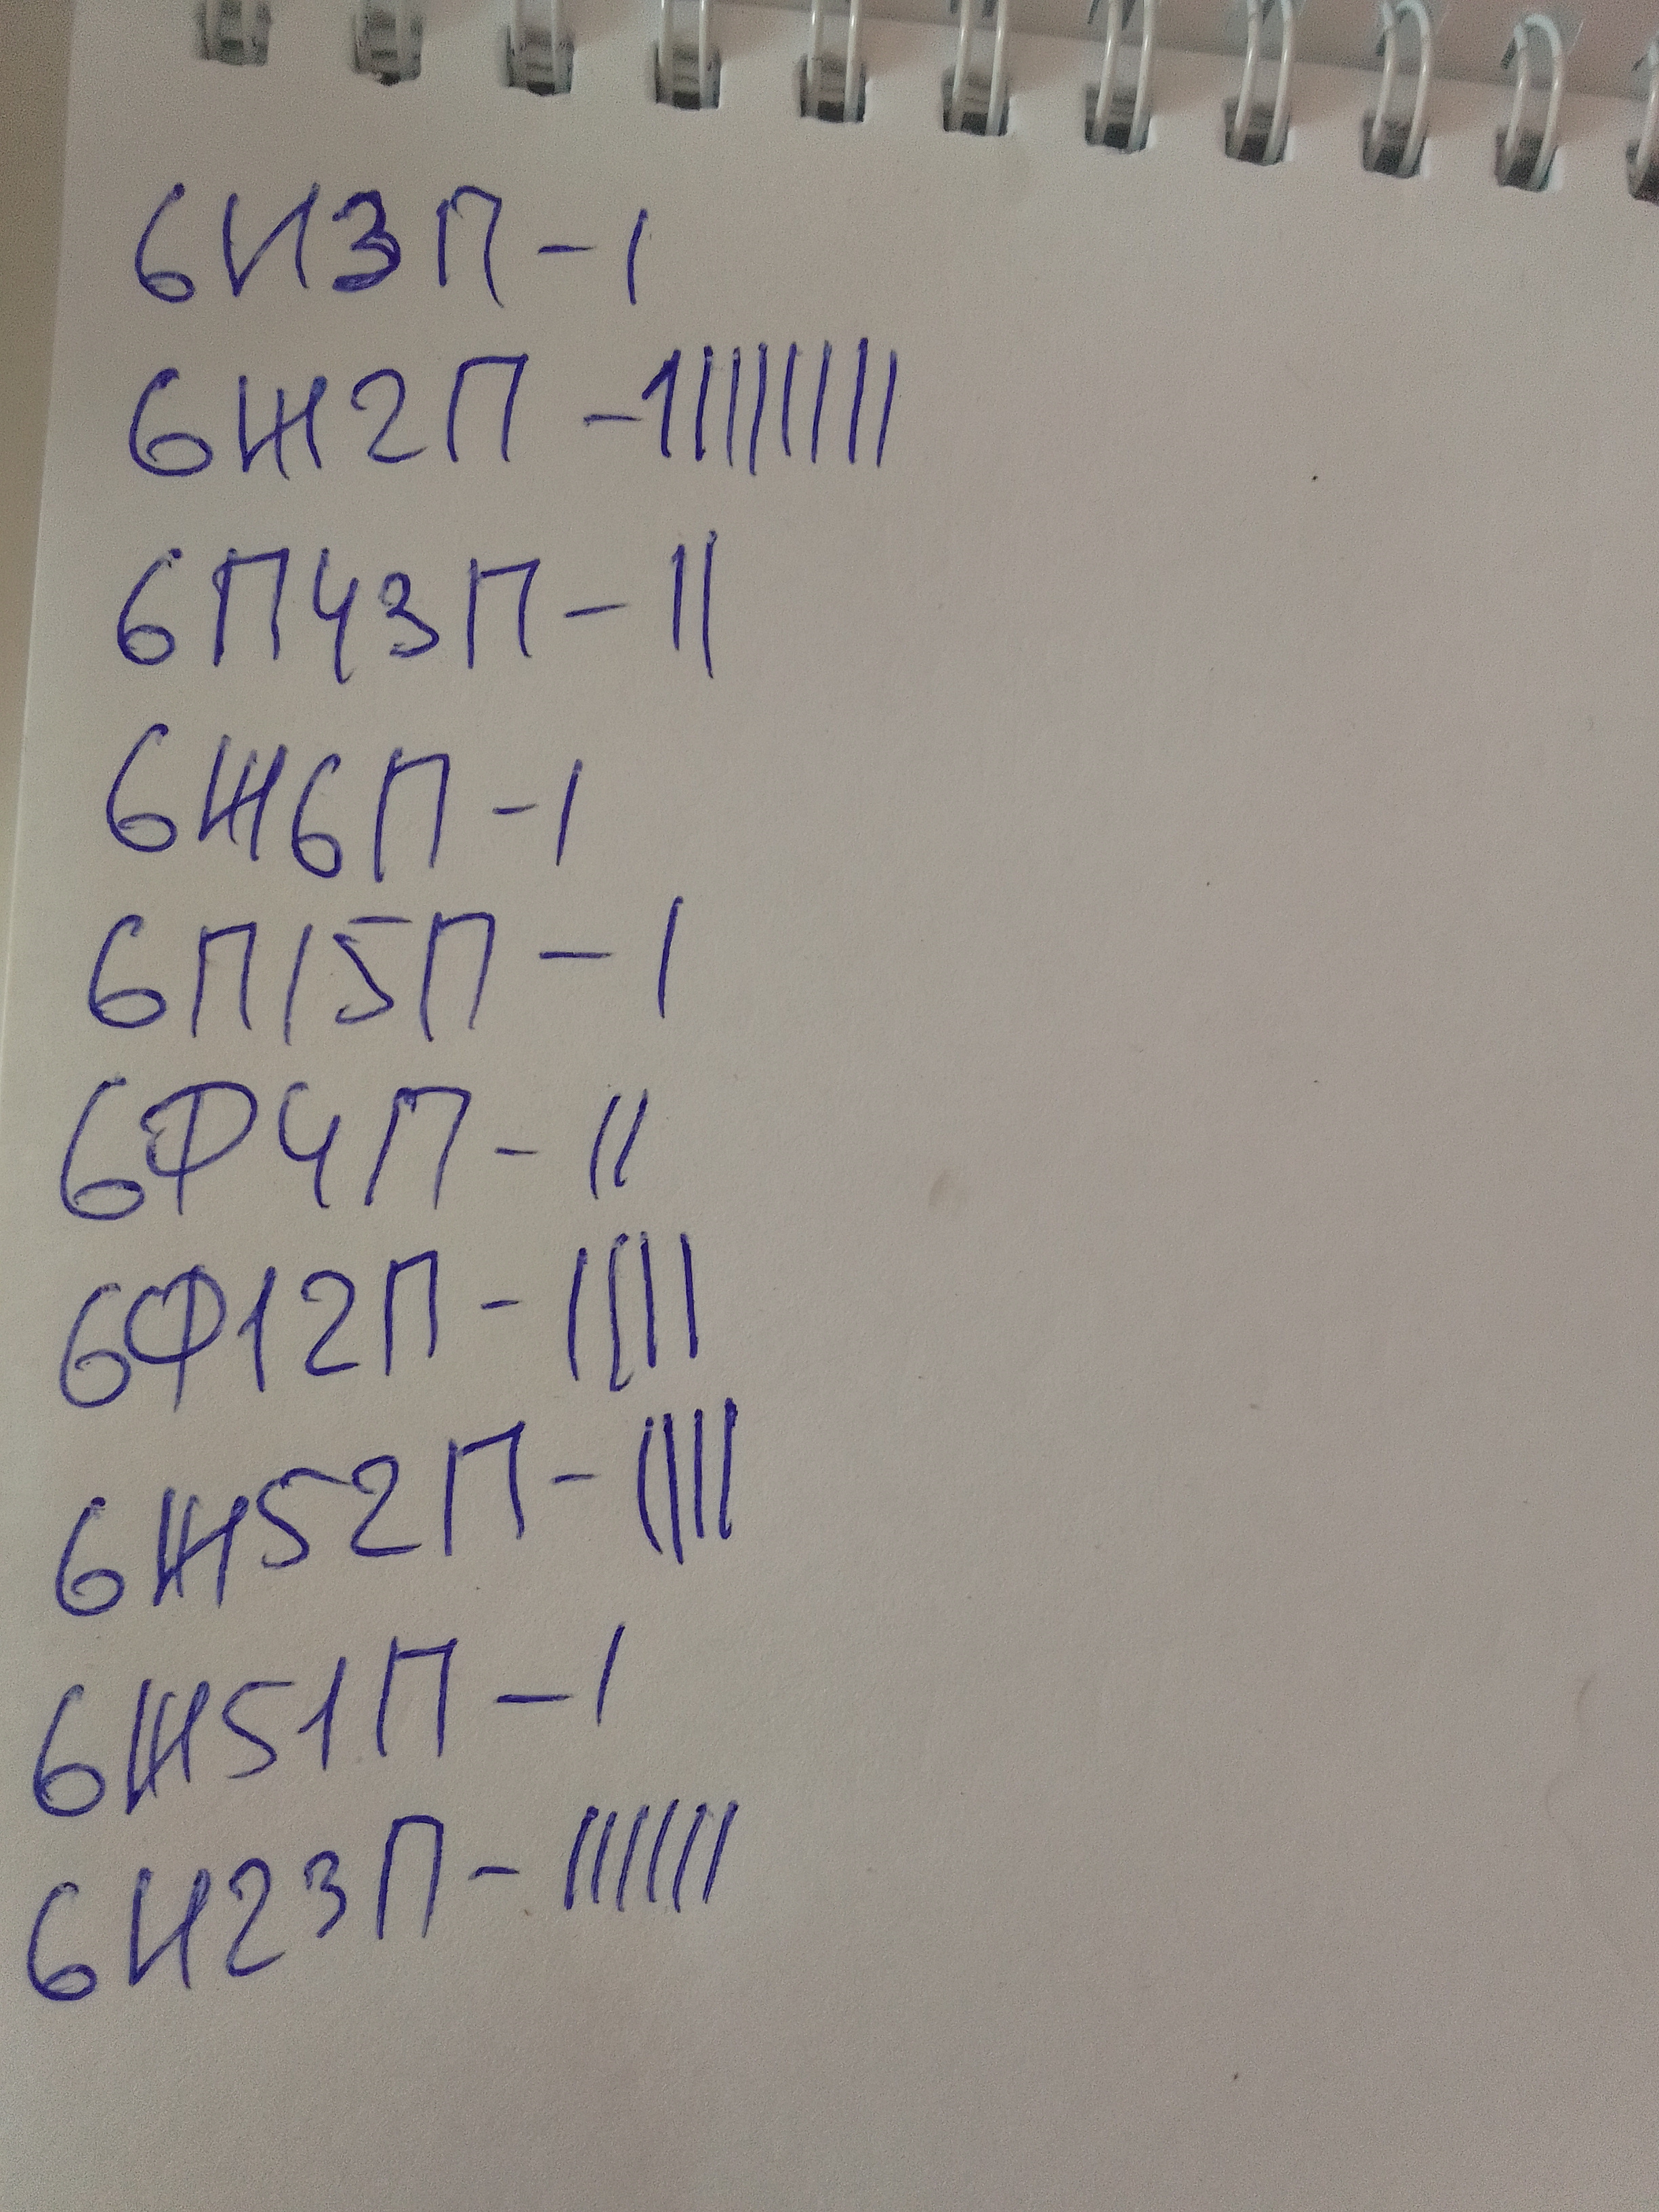 6И3П - I
6Ж2П - IIIIIIII
6П43П - II
6Ж6П - I
6П15П - I
6Ф4П - II
6Ф12П - IIII
6Ж52П - IIII
6Ж51П - I
6И23П - IIIIII